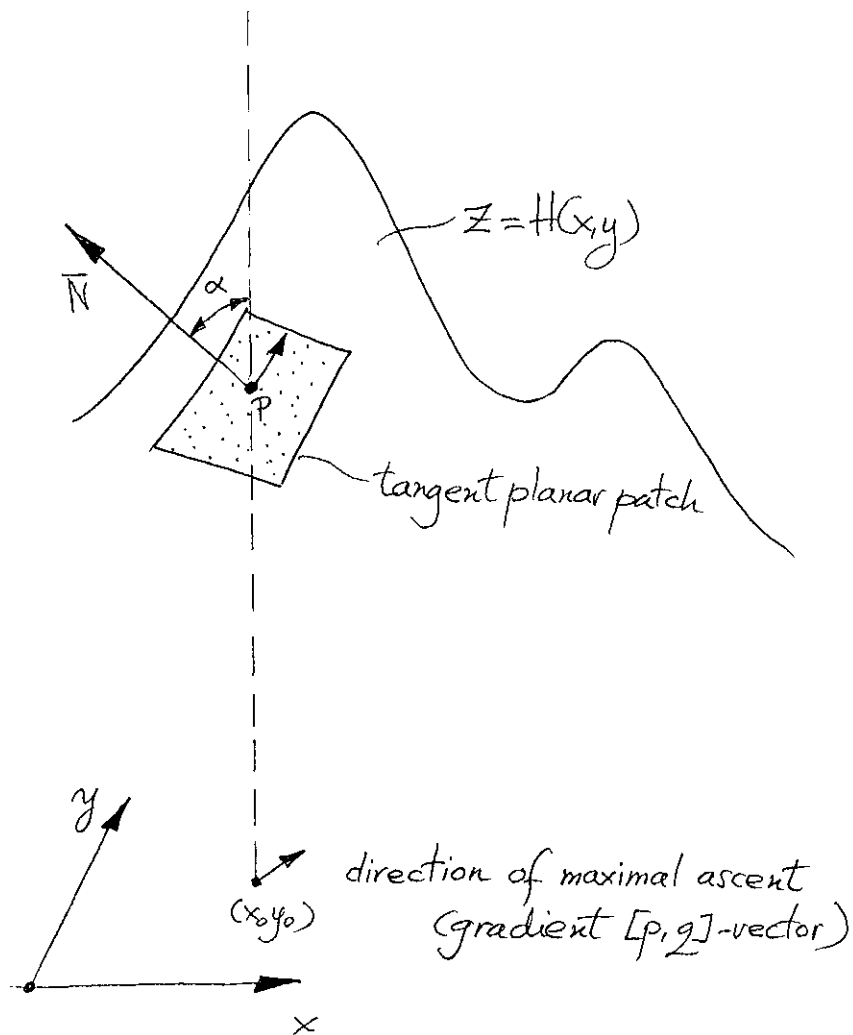 z = H(x,y)
N̄
α
P
tangent planar patch
y
direction of maximal ascent
(x₀y₀)
(gradient [p,q]-vector)
x